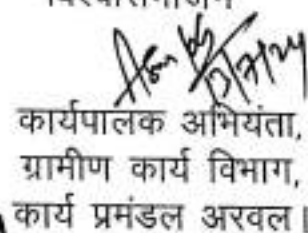 विश्वासभाजन
कार्यपालक अभियंता,
ग्रामीण कार्य विभाग,
कार्य प्रमंडल अरवल।